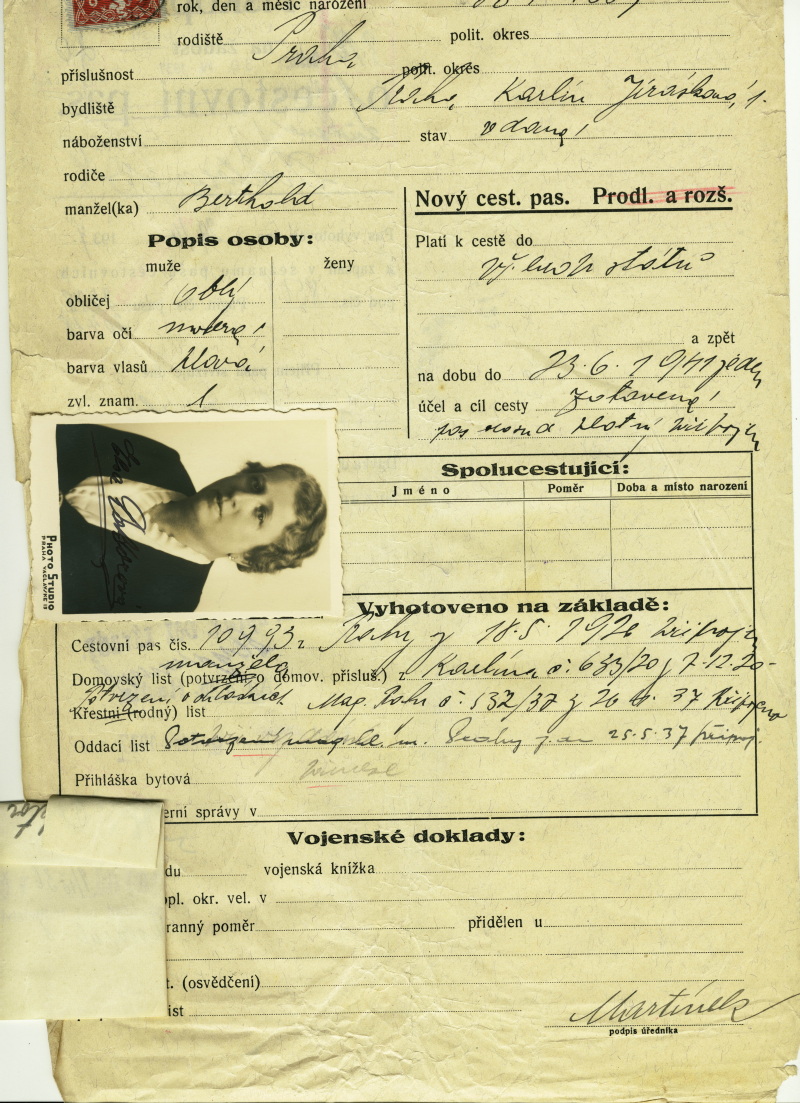 rok, den a měsíc narození
rodiště Praha polit. okres
příslušnost polit. okres
bydliště Praha, Karlín Jiráskova, 1.
náboženství stav vdaná
rodiče
manžel(ka) Berthold
Nový cest. pas. Prodl. a rozš.
Popis osoby:
muže ženy
obličej oblý
barva očí modrá
barva vlasů plavá
zvl. znam. 1
Platí k cestě do
států
a zpět
na dobu do 23.6.1941
účel a cíl cesty zotavení
pas
PHOTO STUDIO
PRAHA
Spolucestující:
Jméno Poměr Doba a místo narození
Vyhotoveno na základě:
Cestovní pas čís. 10993 z Prahy z 18.5.1926 připojen
manžela
Domovský list (potvrzení o domov. přísluš.) z Karlína č. 633/20 z 7.12.20
potvrzení o
Křestní (rodný) list Mag. Prahy č. 532/37 z 26 37 připojeno
Oddací list m. Prahy z 25.5.37 připoj.
Přihláška bytová
erní správy v
Vojenské doklady:
du vojenská knížka
pl. okr. vel. v
ranný poměr přidělen u
t. (osvědčení)
ist
Martínek
podpis úředníka